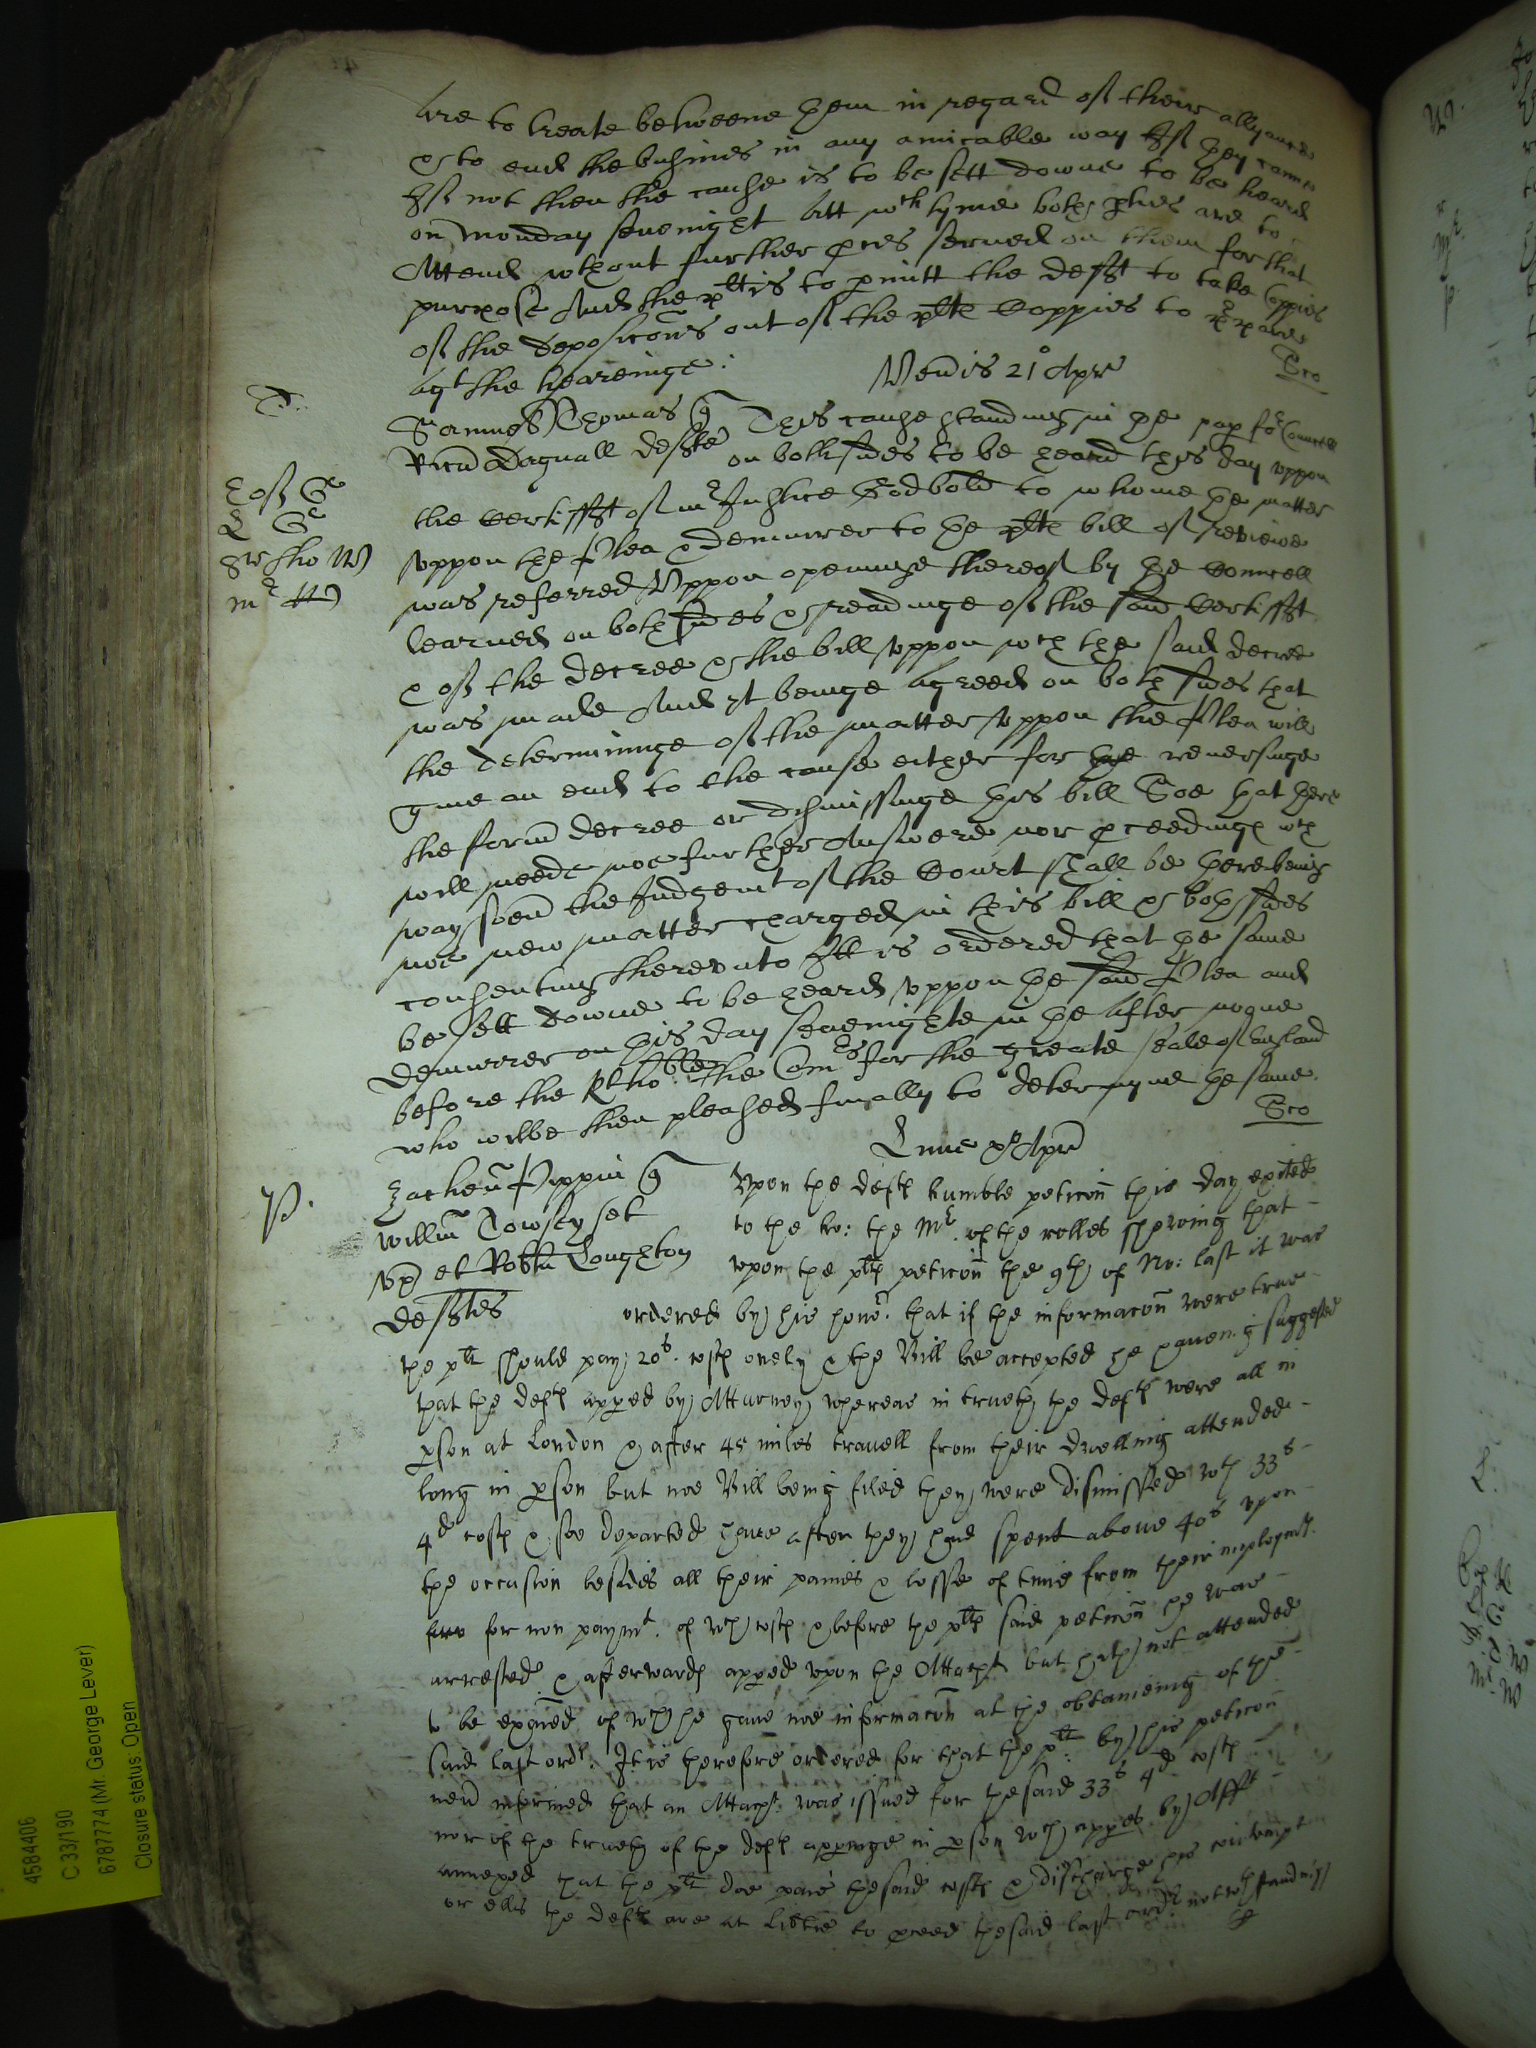 are to treate betweene them in regard of theire allyance
& to end the busines in any amicable way If they cann
If not then the cause is to be sett downe to be heard
on Monday sevenight att wch tyme both pties are to
Attend wthout further pces served on them for that
purpose And the plt is to pmitt the deft to take Coppies
of the deposicons out of the plts Coppies to ppare
agt the heareinge.
Veneris 21o Apr
Sco
T.
Samuel Thomas q This cause standing in the pap for Councell
Ricus Bagnall defts on both sides to be heard this day uppon
the Certifft of mr Justice Godbold to whome the matter
uppon the Plea & demurrer to the plts bill of reviewe
was referred Uppon openinge thereof by the Councell
learned on both sides & readinge of the said Certifft
& of the decree & the bill uppon wch the said decree
was made And yt beinge agreed on both sides that
the determininge of the matter uppon the Plea will
give an end to the cause either for the reversinge
the form decree or dismissinge this bill Soe that there
will neede noe further Answere nor pceedings wch
way soeu the Judgemt of the Court shall be there being
noe new matter charged in this bill & both sides
consenting thereunto Itt is ordered that the same
be sett downe to be heard uppon the said Plea and
demurrer on this day sevenighte in the after noone
before the Rt hoble the Comrs for the greate seale of England
who wilbe then pleased finally to determyne the same.
Sco
Lune Apr
P.
Zacheus Pippin q
Willm Towsey set
ux et Robtu Loughton
deftes
Upon the defts humble peticon this day exited
to the ho: the Mr. of the rolles shewing that
upon the plts peticon the 9th of No: last it was
ordered by his honor. that if the informacon were true
the plt should pay 20s. costs onely & the Bill be accepted he haveing suggested
that the defts appeed by Atturney whereas in trueth the defts were all in
pson at London & after 45 miles travell from their dwelling attended
long in pson but noe Bill being filed they were dismissed wth 33s
4d costs & soe departed have after they had spent above 40s upon
the occasion besides all their paines & losse of time from their imploymts.
for non paymt. of wch costs & before the plts said peticon he was
arrested & afterwards appeed upon the Attachmt but hath not attended
to be exaied of wch he gave noe informacon at the obtaineing of the
said last ordr. It is therefore ordered for that the plt. by his peticon
neu informed that an Attachmt was issued for the said 33s 4d costs
nor of the trueth of the defts appinge in pson wch appes by Afft
annexed that the plt doe paie the said costs & discharge his contempt
or ells the defts are at libtie to pceed the said last ordr notwthstanding
4584406
C 33/190
6787774 (Mr. George Lever)
Closure status: Open